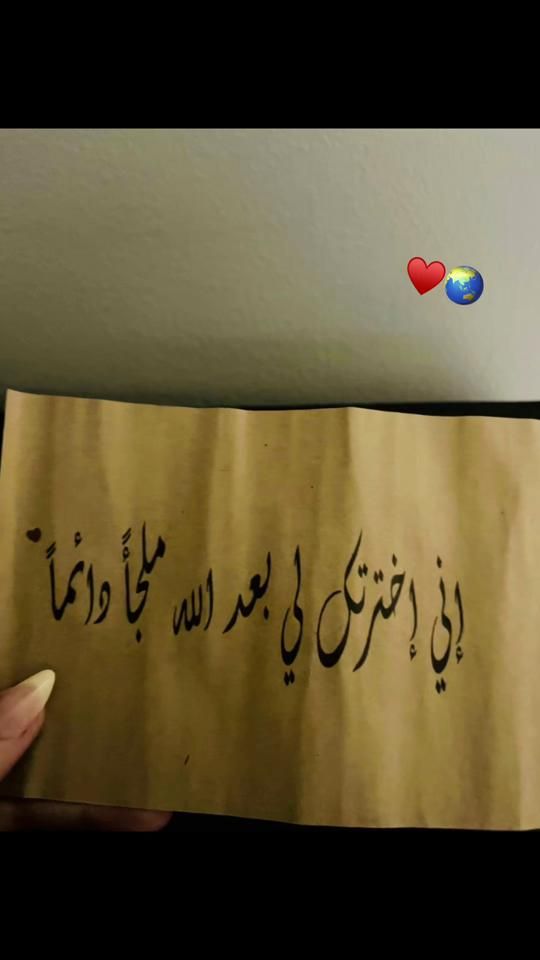 إني إخترتكَ لي بعد الله ملجأً دائماً